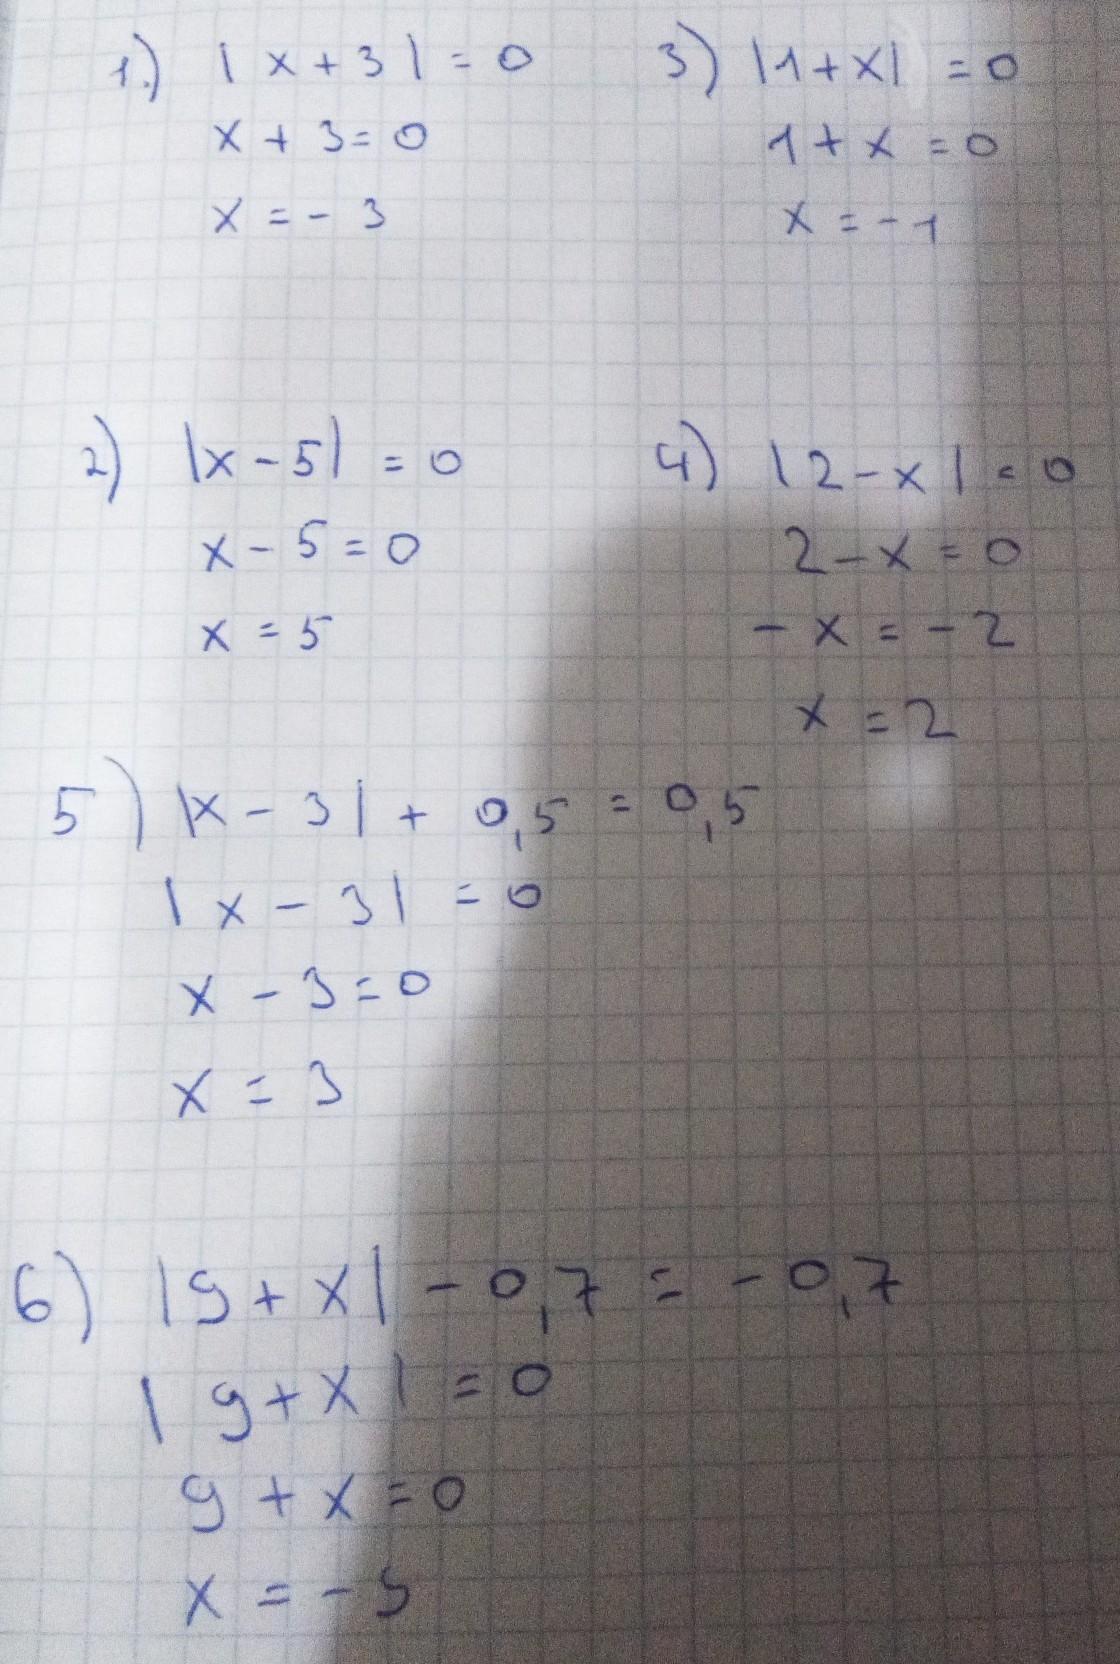 1.) |x+3| = 0
x + 3 = 0
x = - 3
3) |1+x| = 0
1 + x = 0
x = -1
2) |x-5| = 0
x - 5 = 0
x = 5
4) |2-x| = 0
2 - x = 0
- x = - 2
x = 2
5) |x-3| + 0,5 = 0,5
|x-3| = 0
x - 3 = 0
x = 3
6) |9+x| - 0,7 = - 0,7
|9+x| = 0
9 + x = 0
x = - 9